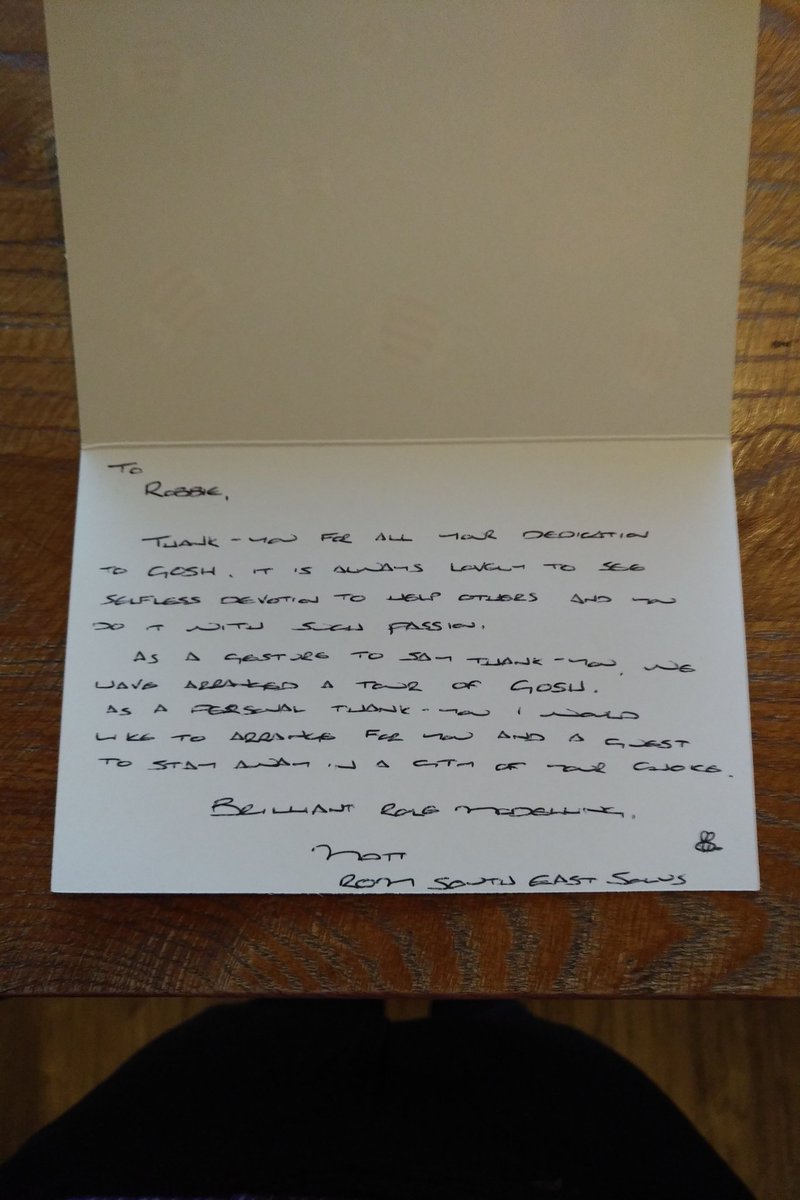 TO
ROBBIE,
THANK-YOU FOR ALL YOUR DEDICATION
TO GOSH. IT IS ALWAYS LOVELY TO SEE
SELFLESS DEVOTION TO HELP OTHERS AND YOU
DO IT WITH SUCH PASSION.
AS A GESTURE TO SAY THANK-YOU, WE
HAVE ARRANGED A TOUR OF GOSH.
AS A PERSONAL THANK-YOU I WOULD
LIKE TO ARRANGE FOR YOU AND A GUEST
TO STAY AWAY IN A CITY OF YOUR CHOICE.
BRILLIANT ROLE MODELLING.
MATT
ROM SOUTH EAST SOLUS